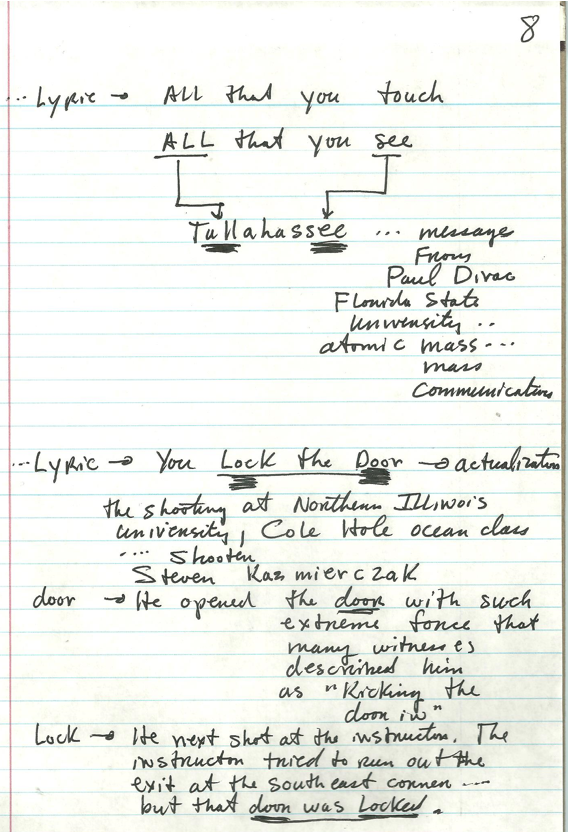 8
... Lyric → ALL that you touch
ALL that you see
Tallahassee ... messages
From
Paul Dirac
Florida State
University ..
atomic mass ...
mass
Communications
... Lyric → You Lock the Door → actualization
the shooting at Northern Illinois
University, Cole Hole ocean class
.... Shooter
Steven Kazmierczak
door → He opened the door with such
extreme force that
many witnesses
described him
as "Kicking the
door in"
Lock → He next shot at the instructor. The
instructor tried to run out the
exit at the southeast corner ....
but that door was Locked.